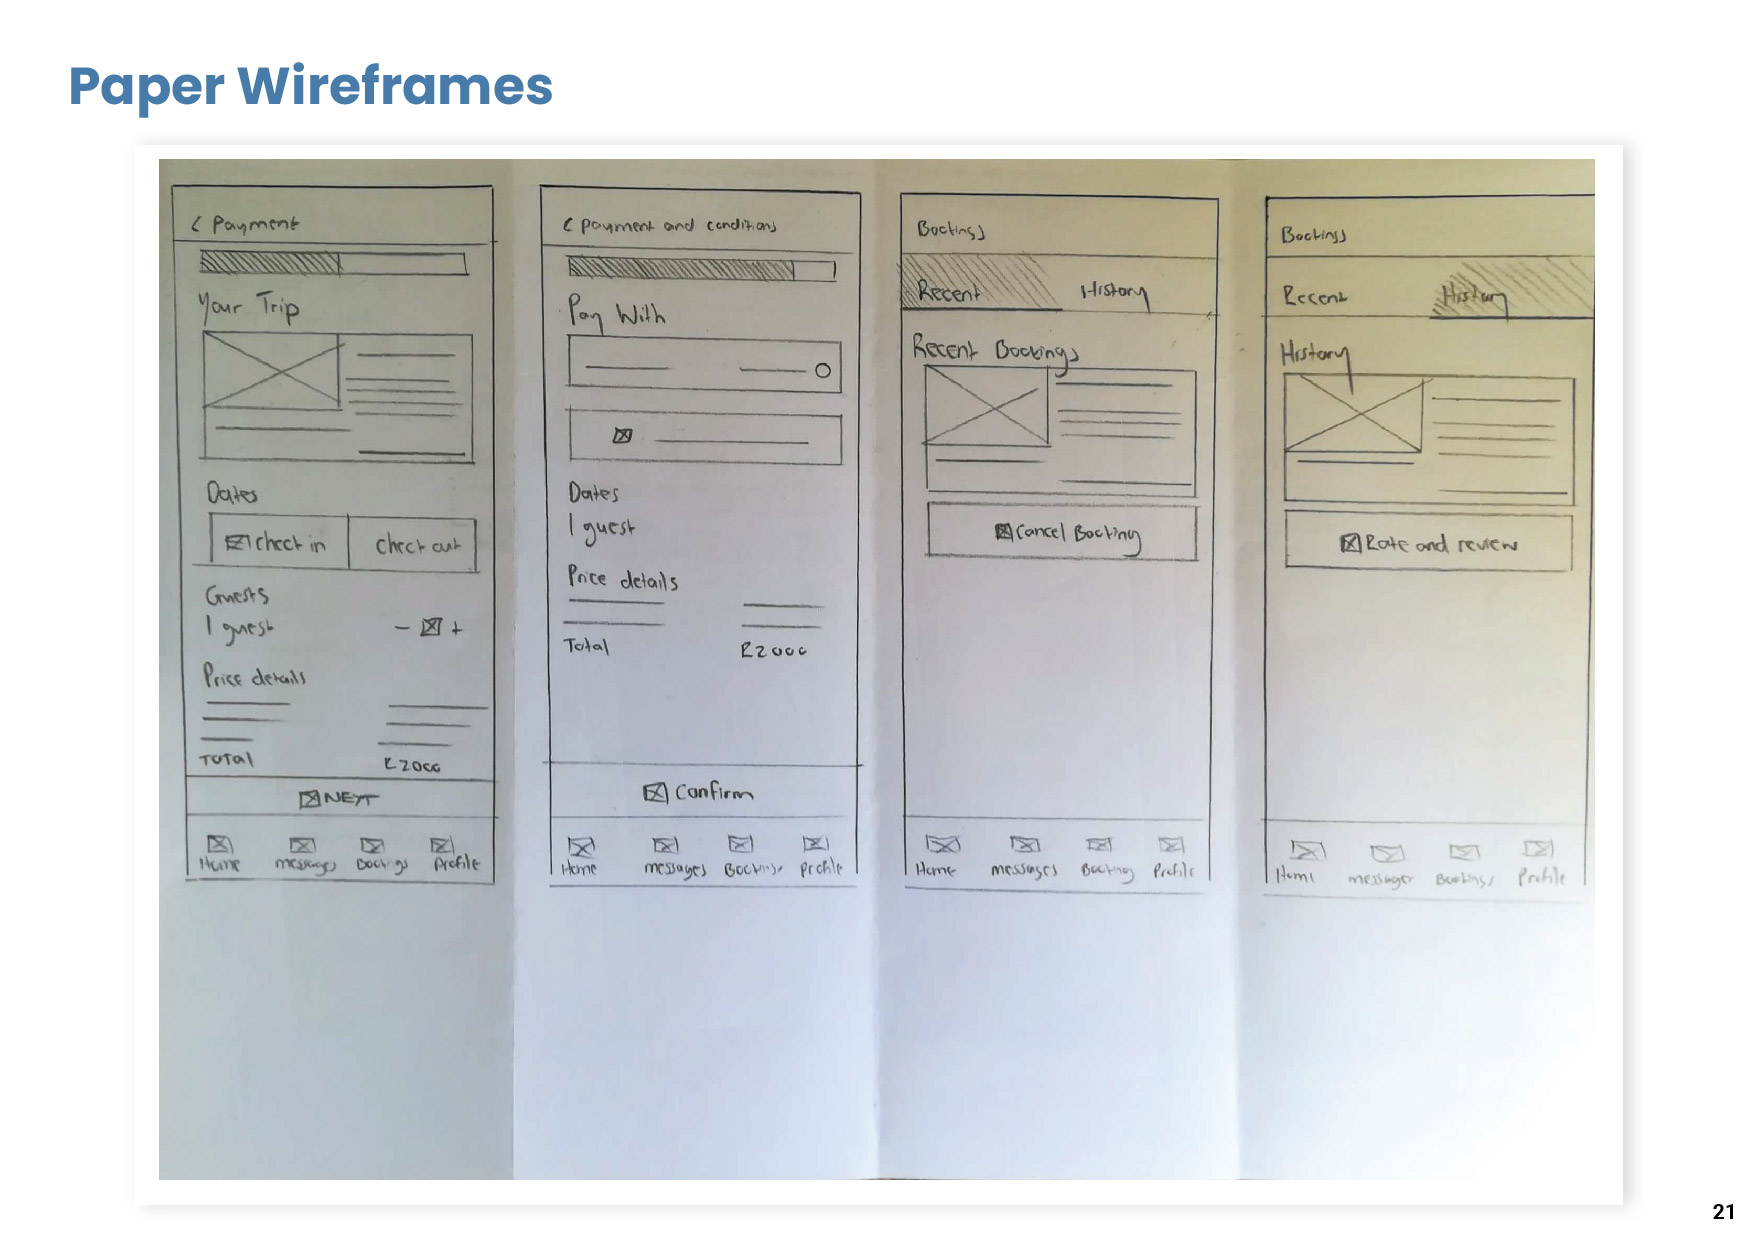 Paper Wireframes
< Payment
Your Trip
Dates
check in
check out
Guests
1 guest
- +
Price details
Total
R2000
NEXT
Home
messages
Bookings
Profile
< Payment and conditions
Pay With
Dates
1 guest
Price details
Total
R2000
Confirm
Home
messages
Bookings
Profile
Bookings
Recent
History
Recent Bookings
Cancel Booking
Home
messages
Booking
Profile
Bookings
Recent
History
History
Rate and review
Home
messages
Bookings
Profile
21